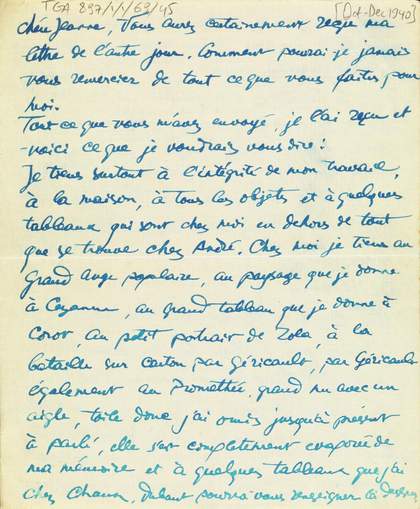 TGA 897/1/1/69/45 [Oct-Dec 1940]
chère Jeanne, Vous avez certainement reçu ma
lettre de l'autre jour. Comment pourai je jamais
vous remercier de tout ce que vous faites pour
moi.
Tout ce que vous m'avez envoyé, je l'ai reçu et
voici ce que je voudrais vous dire :
Je tiens surtout à l'intégrité de mon travail,
à la maison, à tous les objets et à quelques
tableaux qui sont chez moi en dehors de tout
que se trouve chez André. Chez moi je tiens au
grand Ange populaire, au paysage que je donne
à Cezanne, au grand tableau que je donne à
Corot, au petit portrait de Zola, à la
bataille sur carton par Géricault, par Géricault
également au Promethée, grand nu avec un
aigle, toile donc j'ai omis jusqu'à présent
à parlé, elle s'est completement evaporée de
ma mémoire et à quelques tableaux que j'ai
chez Dubant pourra vous renseigner là dessus